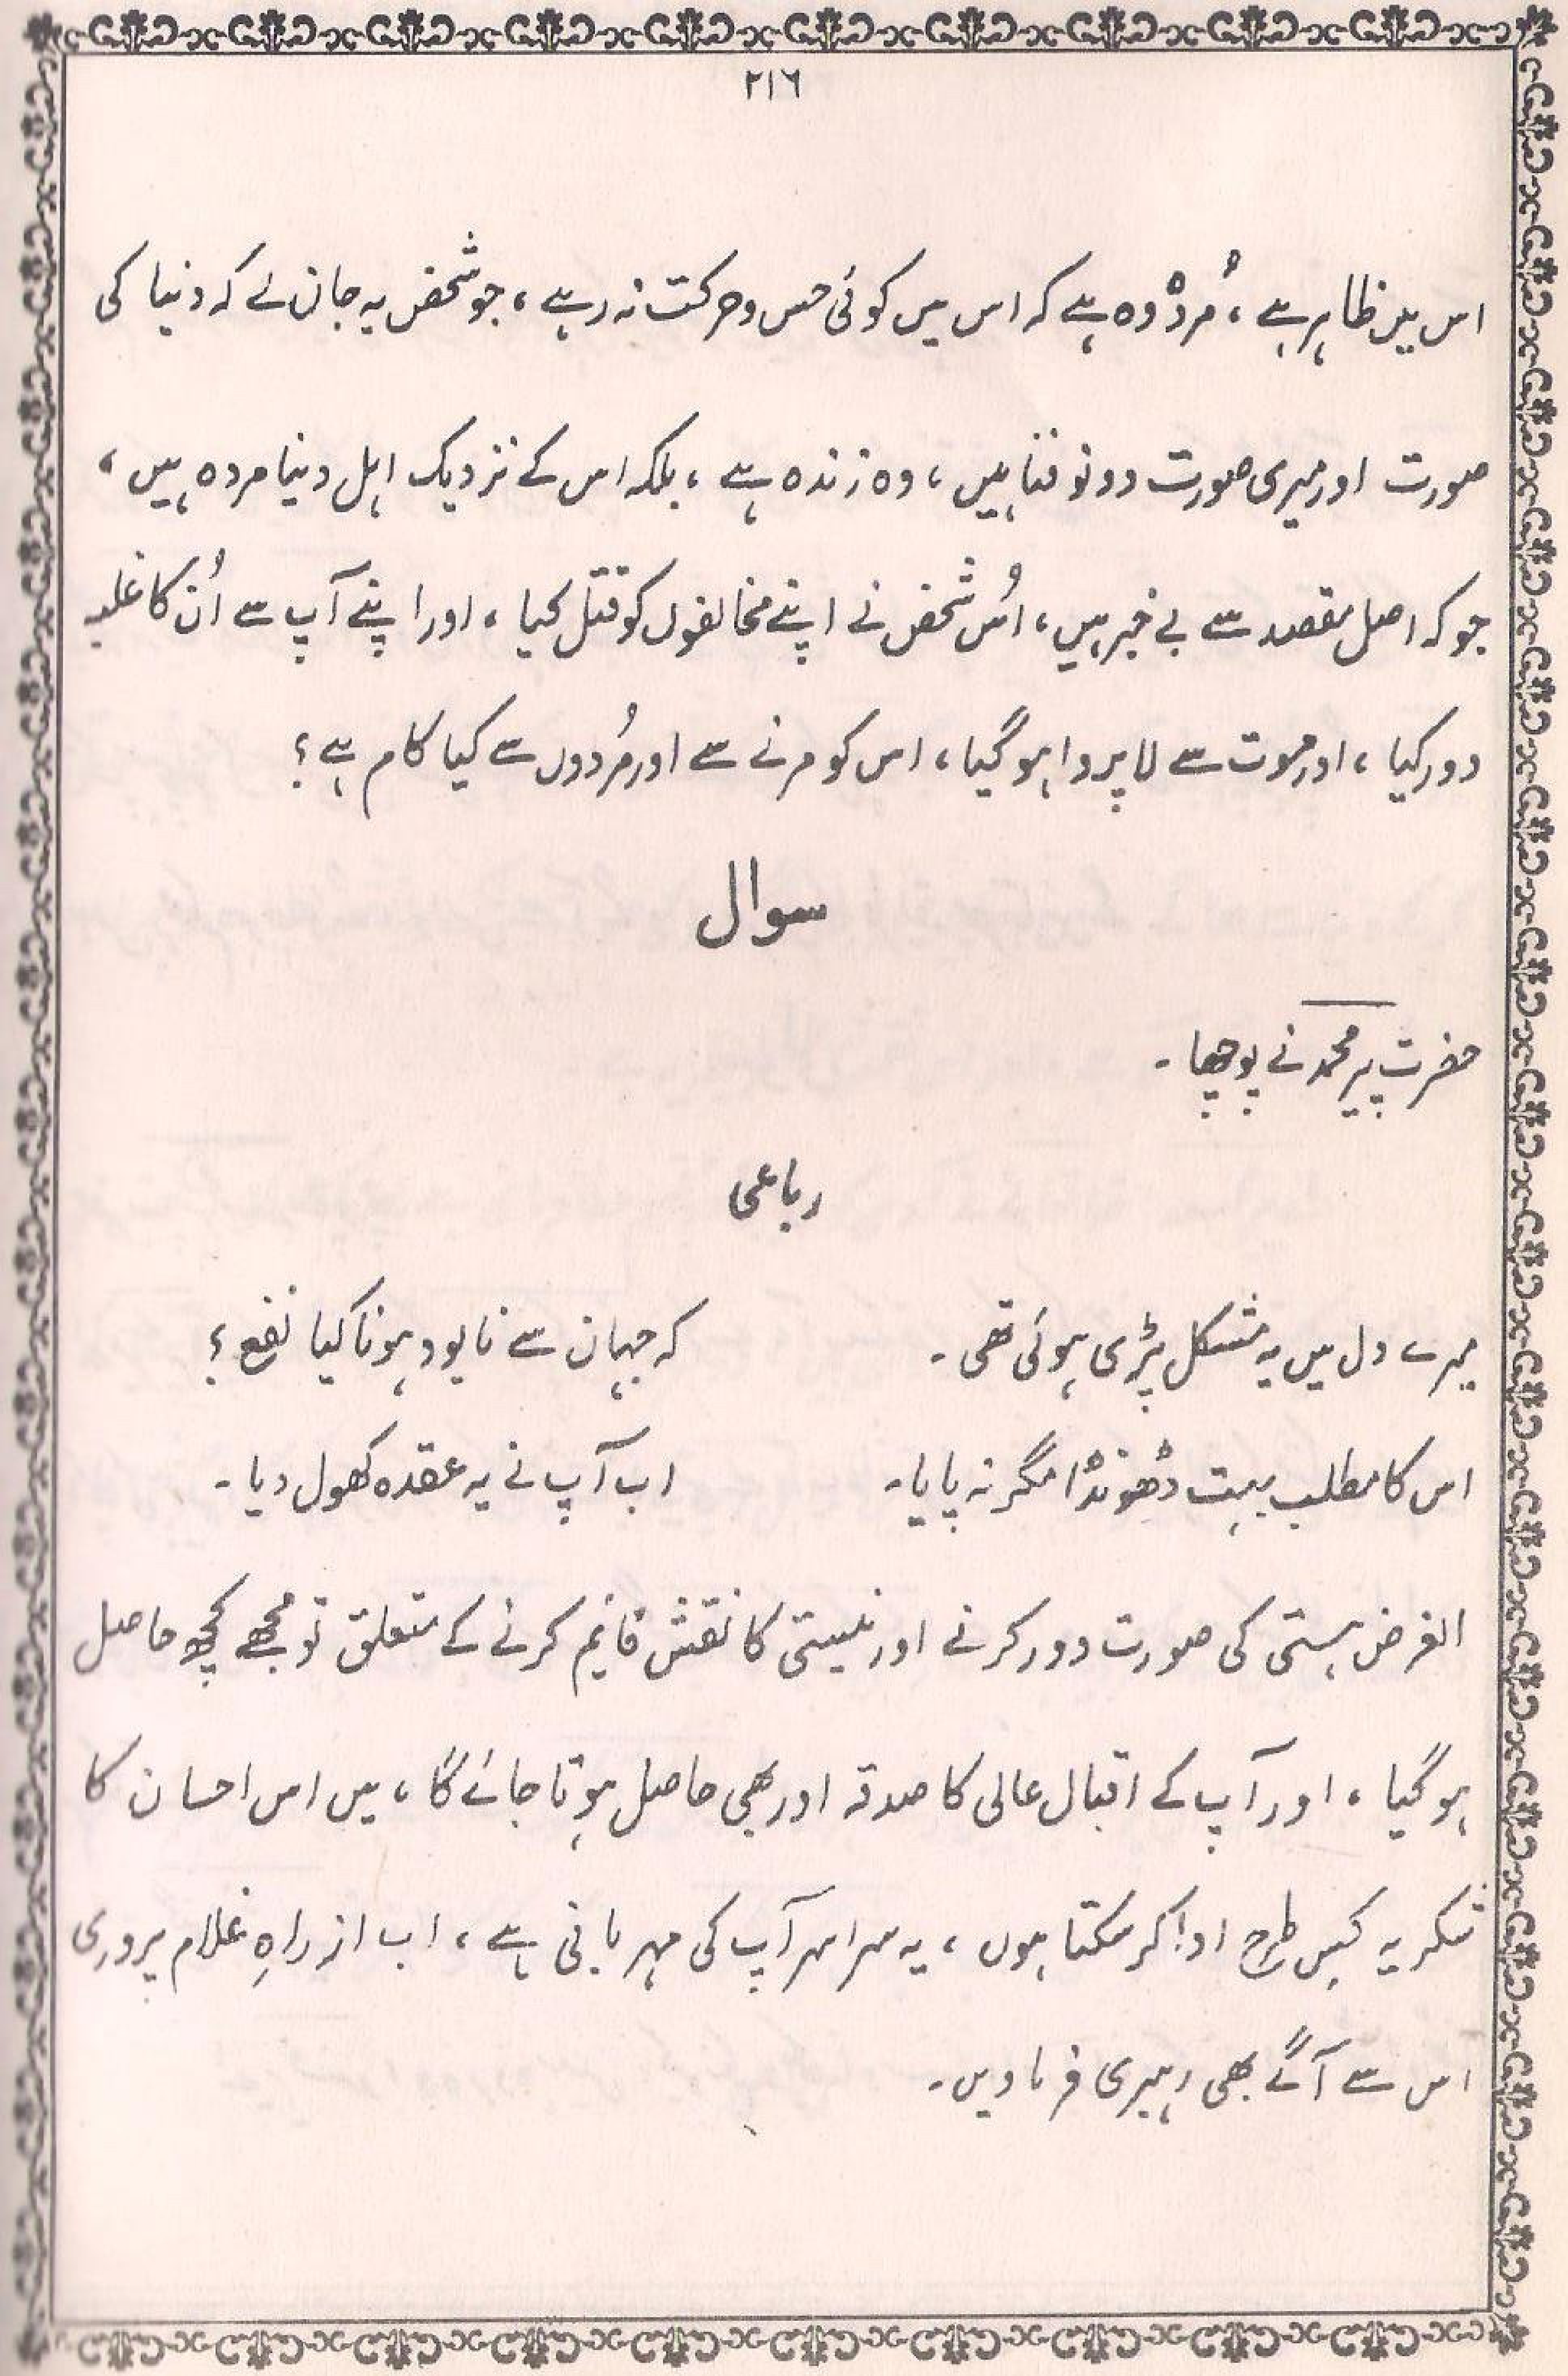 ۲۱۶
اس میں ظاہر ہے ، مُردْہ وہ ہے کہ اس میں کوئی حس و حرکت نہ رہے ، جو شخص یہ جان لے کہ دنیا کی
صورت اور میری صورت دونو فنا ہیں ، وہ زندہ ہے ، بلکہ اس کے نزدیک اہل دنیا مردہ ہیں ،
جو کہ اصل مقصد سے بے خبر ہیں ، اُس شخص نے اپنے مخالفوں کو قتل کیا ، اور اپنے آپ سے اُن کا غلبہ
دور کیا ، اور موت سے لا پروا ہو گیا ، اس کو مرنے سے اور مُردوں سے کیا کام ہے ؟
سوال
حضرت پیر محمد نے پوچھا ۔
رباعی
میرے دل میں یہ مشکل پڑی ہوئی تھی ۔ کہ جہان سے نابود ہونا کیا نفع ؟
اس کا مطلب بہت ڈھونڈا مگر نہ پایا ۔ اب آپ نے یہ عقدہ کھول دیا ۔
الغرض ہستی کی صورت دور کرنے اور نیستی کا نقش قائم کرنے کے متعلق تو مجھے کچھ حاصل
ہو گیا ، اور آپ کے اقبال عالی کا صدقہ اور بھی حاصل ہوتا جائے گا ، میں اس احسان کا
شکریہ کِس طرح ادا کر سکتا ہوں ، یہ سراسر آپ کی مہربانی ہے ، اب از راہِ غلام پروری
اس سے آگے بھی رہبری فرما دیں ۔